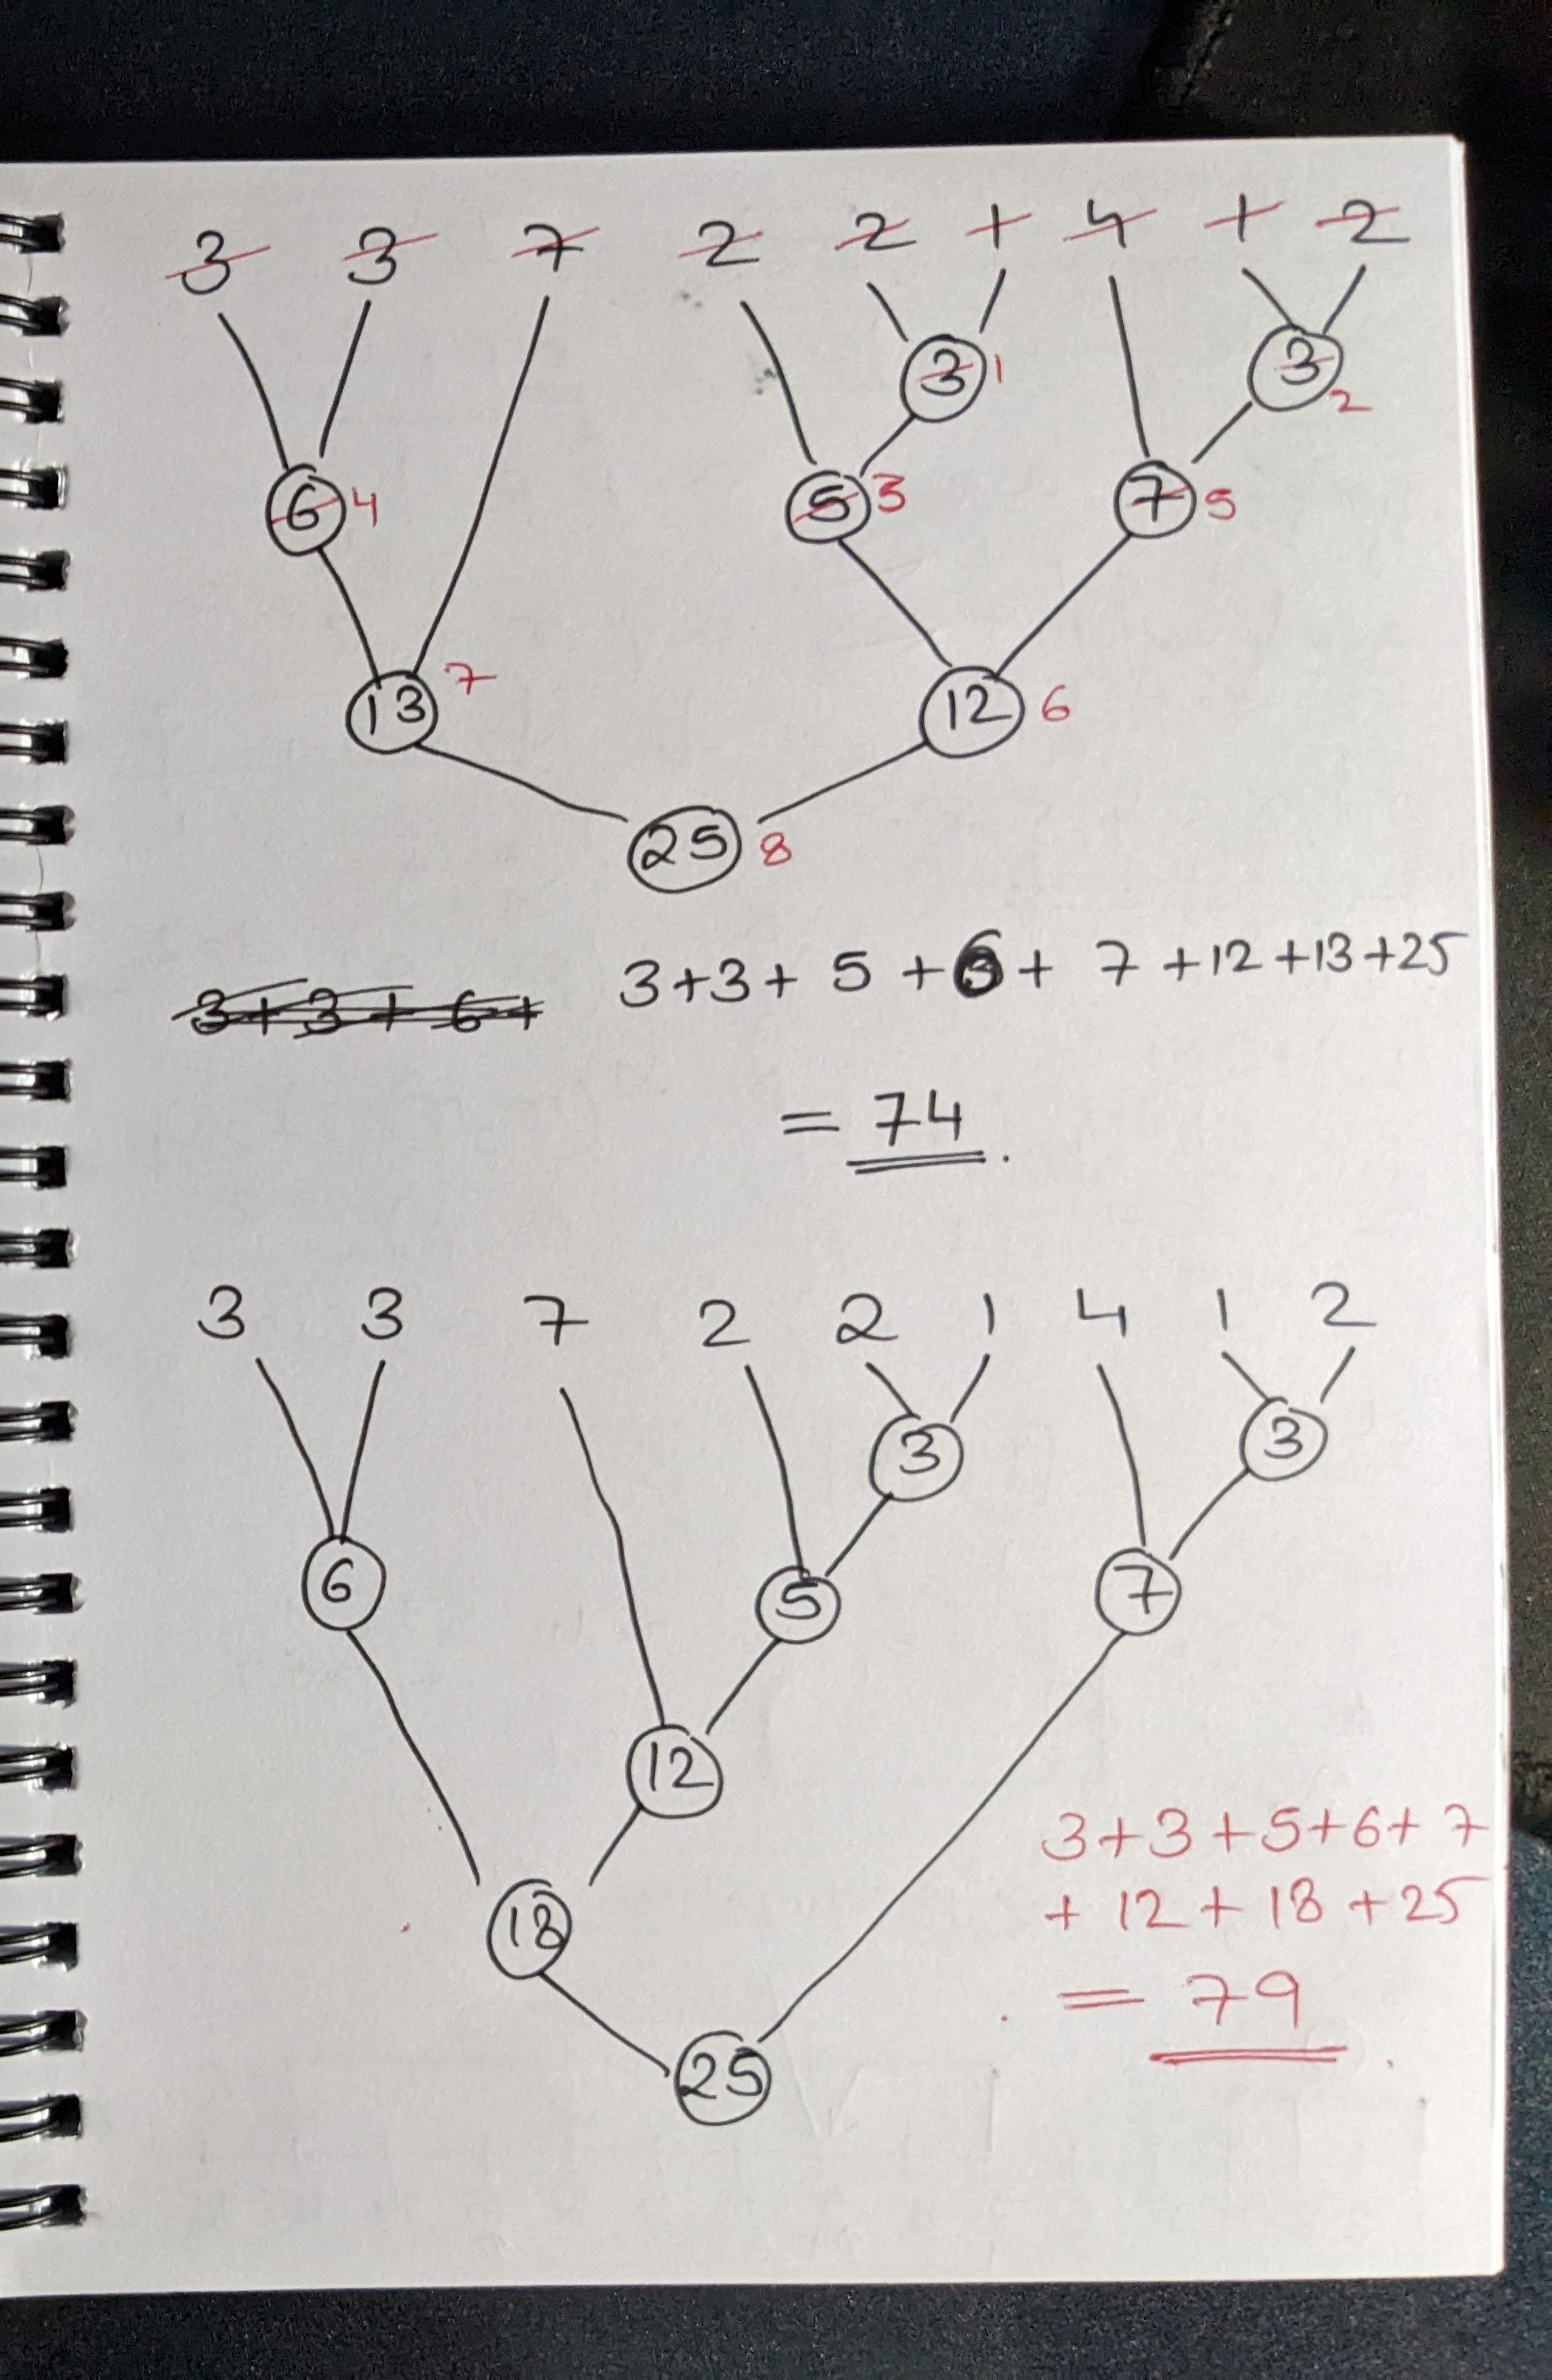 3 3 7 2 2 1 4 1 2
3 1 3 2
6 4 5 3 7 5
13 7 12 6
25 8
3+3+6+ 3+3+ 5 +6+ 7 +12+13+25
= 74.
3 3 7 2 2 1 4 1 2
3 3
6 5 7
12
3+3+5+6+7
18 + 12 + 18 + 25
= 79.
25